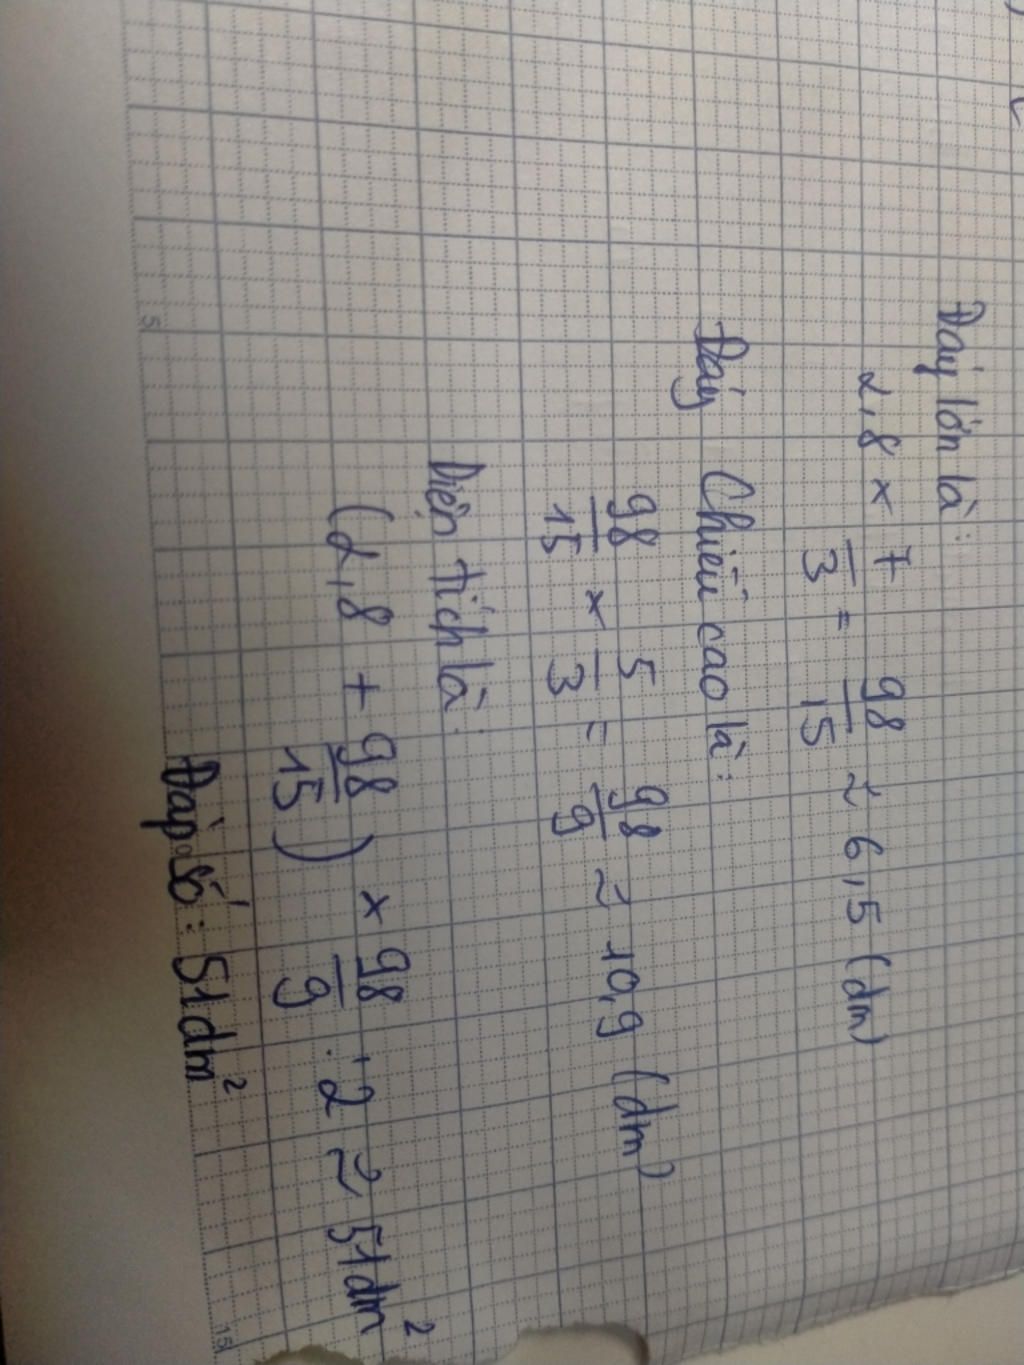 Đáy lớn là:
2,8 × 7/3 = 98/15 ≈ 6,5 (dm)
Đáy Chiều cao là:
98/15 × 5/3 = 98/9 ≈ 10,9 (dm)
Diện tích là:
(2,8 + 98/15) × 98/9 : 2 ≈ 51dm²
Đáp số: 51dm²
5
15